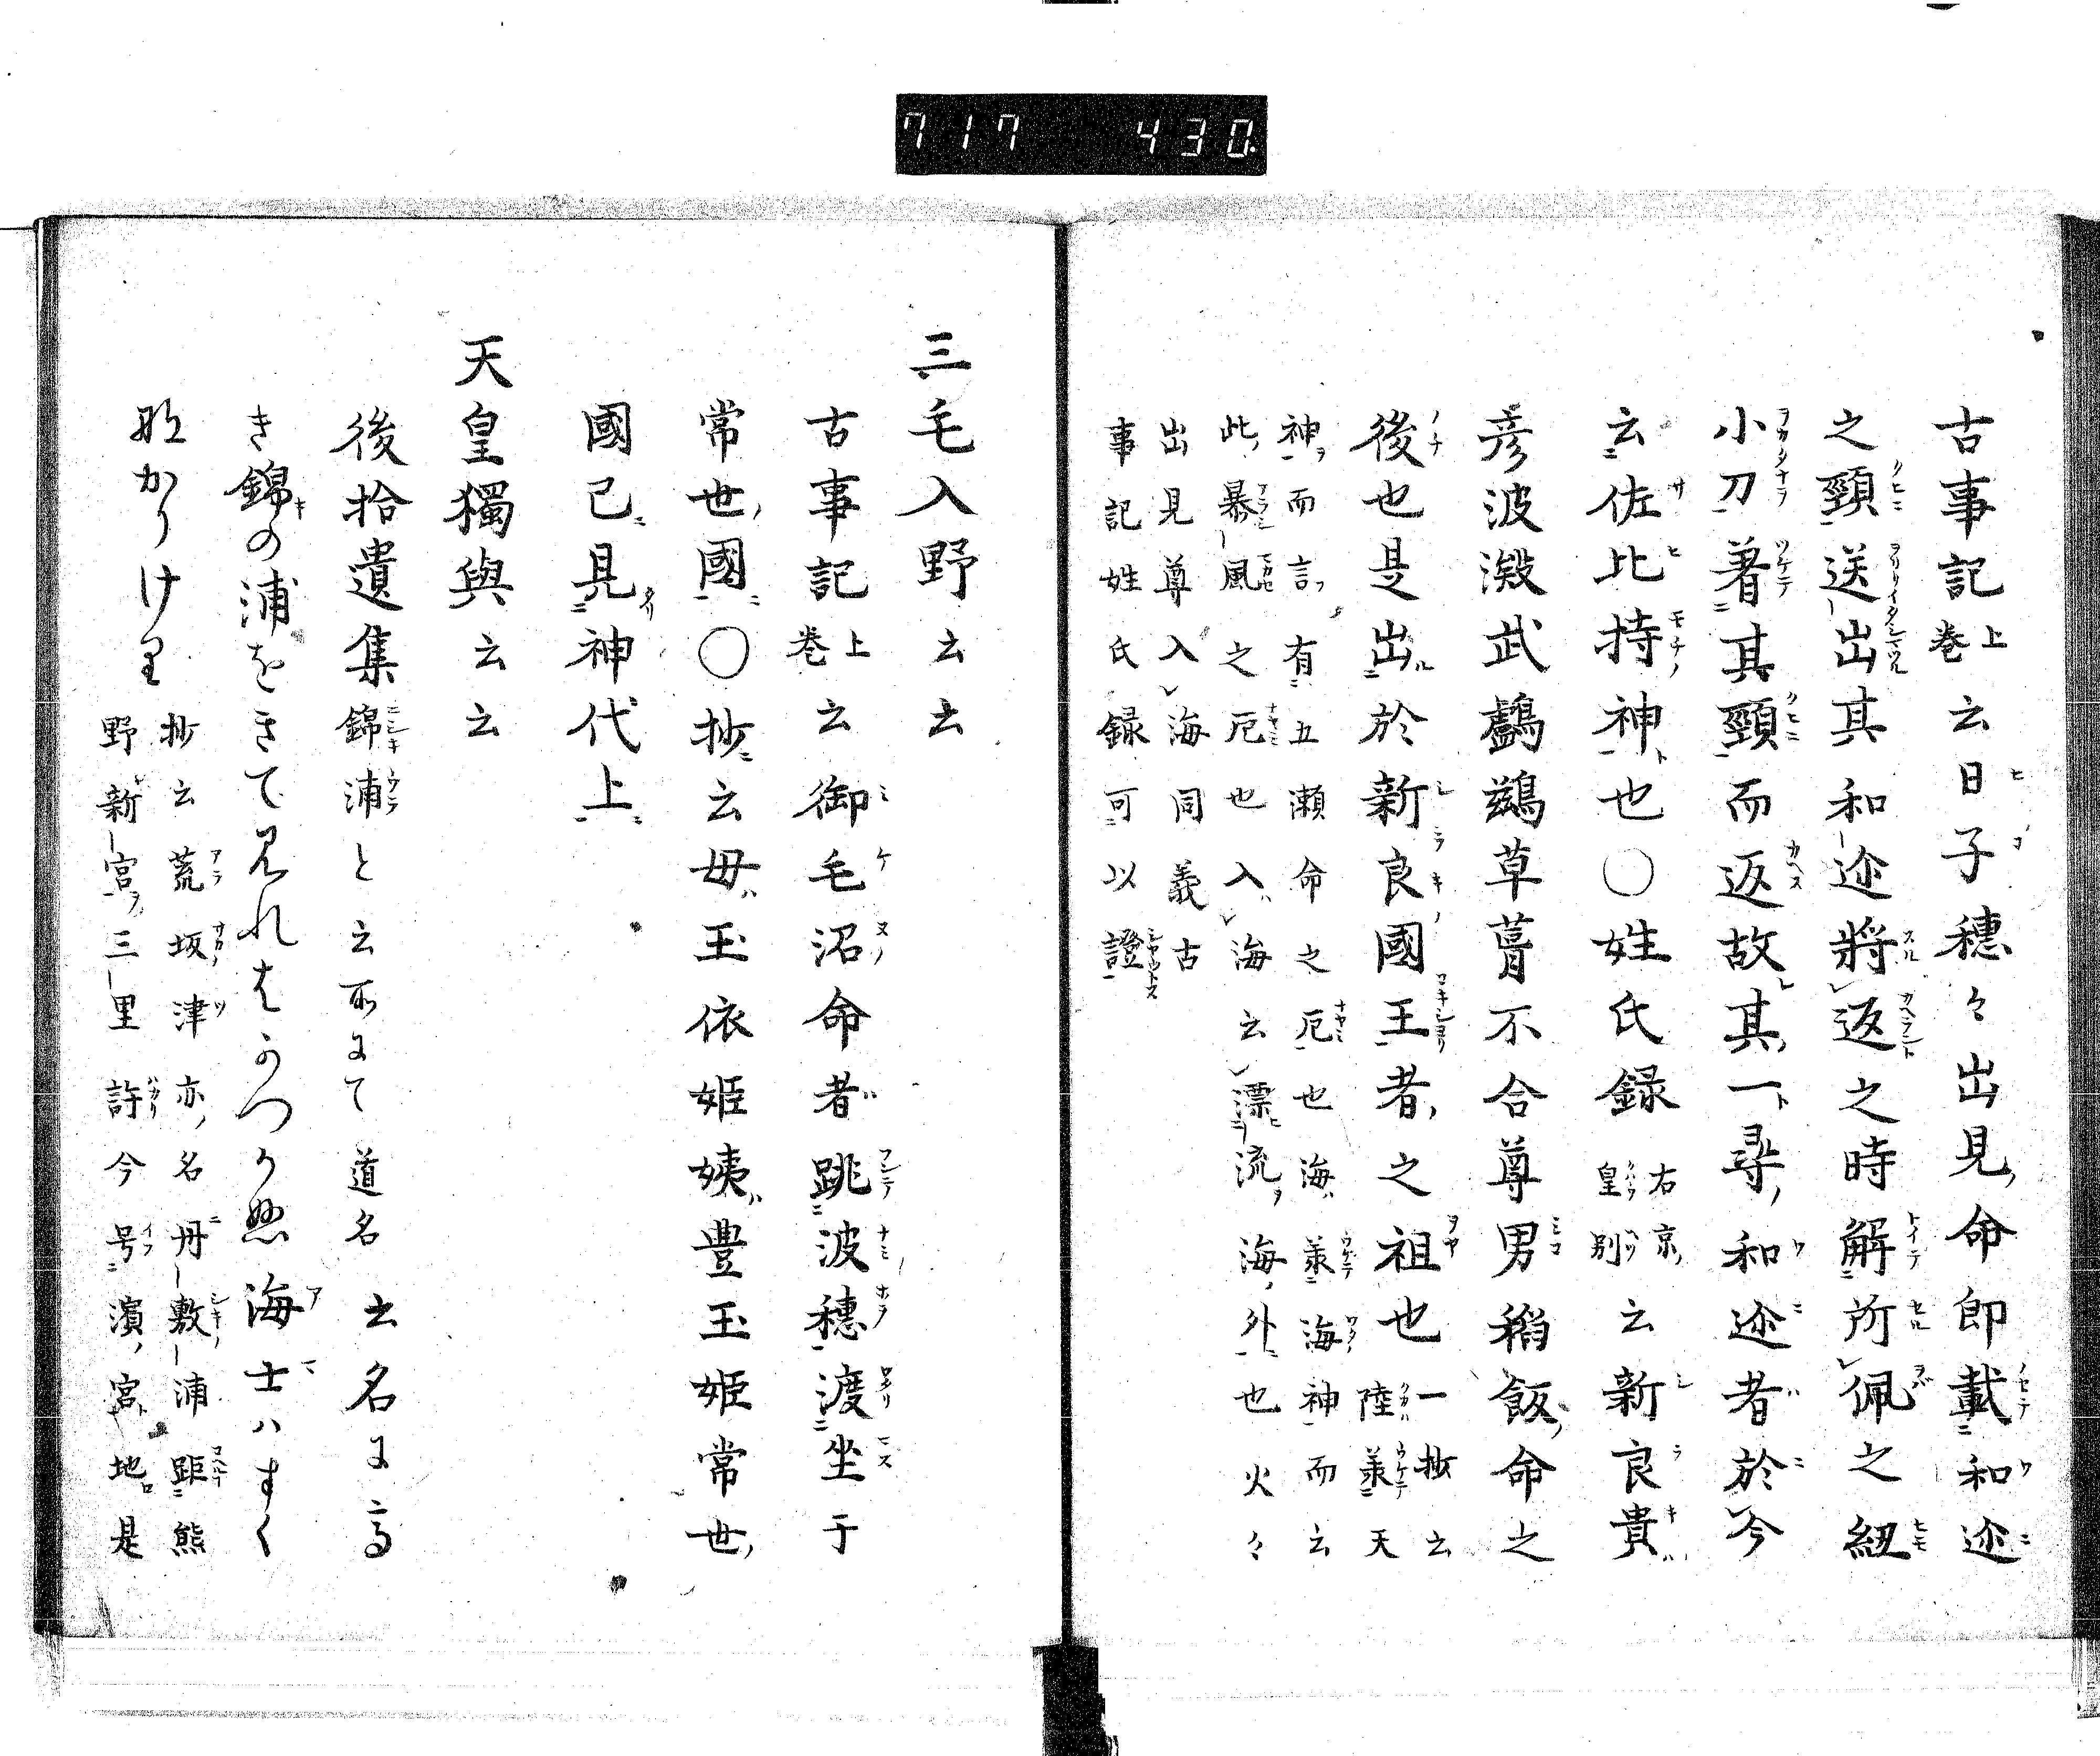 717 430
古事記上巻云日子穂々出見命即載和迩
之頸送出其和迩將返之時解所佩之紐
小刀著其頸而返故其一尋和迩者於今
云佐比持神也〇姓氏録右京皇別云新良貴
彦波瀲武鸕鷀草葺不合尊男稲飯命之
後也是出於新良國王者之祖也一抄云陸羕天
神而言有五瀬命之厄也海羕海神而云
此暴風之厄也入海云漂流海外也火々
出見尊入海同義古
事記姓氏録可以證
三毛入野云云
古事記上巻云御毛沼命者跳波穂渡坐于
常世國〇抄云毋玉依姫姨豊玉姫常世
國已見神代上
天皇獨與云云
後拾遺集錦浦と云所にて道名云名に高
き錦の浦をきて見れはかつかぬ海士ハすく
なかりけり
抄云荒坂津亦名丹敷浦距熊
野新宮三里許今号濱宮地是